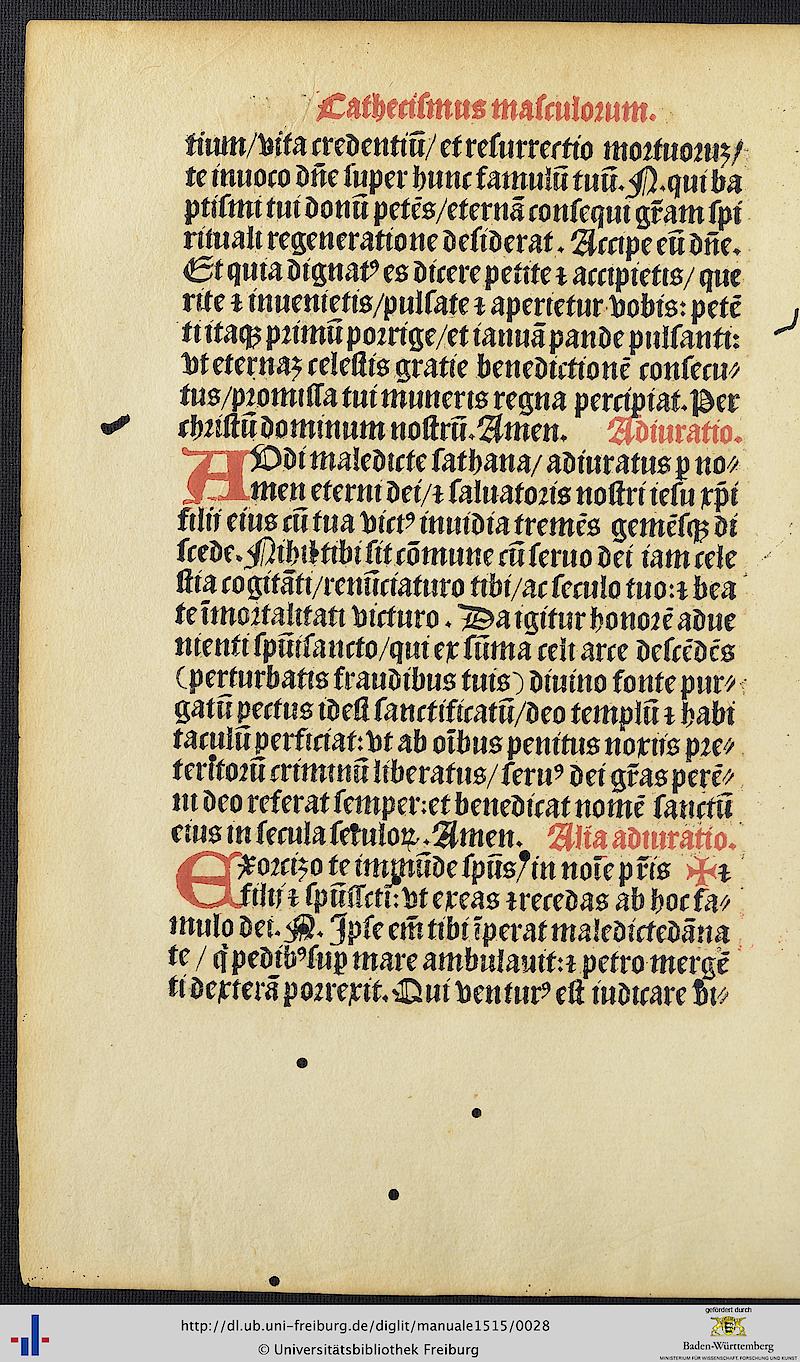 Cathecismus masculorum.
tium/vita credentiū/ et resurrectio mortuoruʒ/
te inuoco dn̄e super hunc famulū tuū. N. qui ba
ptismi tui donū petēs/eternā consequi gr̄am spi
rituali regeneratione desiderat. Accipe eū dn̄e.
Et quia dignatꝰ es dicere petite ⁊ accipietis/ que
rite ⁊ inuenietis/pulsate ⁊ aperietur vobis: petē
ti itaqꝫ primū porrige/et ianuā pande pulsanti:
vt eternaʒ celestis gratie benedictionē consecu⸗
tus/promissa tui muneris regna percipiat. Per
christū dominum nostrū. Amen. Adiuratio.
AUdi maledicte sathana/ adiuratus ꝑ no⸗
men eterni dei/⁊ saluatoris nostri iesu xp̄i
filij eius cū tua victꝰ inuidia tremēs gemēsqꝫ di
scede. Nihil tibi sit cōmune cū seruo dei iam cele
stia cogitāti/renūciaturo tibi/ac seculo tuo:⁊ bea
te īmortalitati victuro. Da igitur honorē adue
nienti spūisancto/qui ex sūma celi arce descēdēs
(perturbatis fraudibus tuis) diuino fonte pur⸗
gatū pectus idest sanctificatū/deo templū ⁊ habi
taculū perficiat: vt ab oībus penitus noxijs pre⸗
teritorū criminū liberatus/ seruꝰ dei gr̄as perē⸗
ni deo referat semper:et benedicat nomē sanctū
eius in secula seculoꝝ. Amen. Alia adiuratio.
Exorcizo te immūde spūs/ in noīe pr̄is ✠ ⁊
filij ⁊ spūsscti: vt exeas ⁊ recedas ab hoc fa⸗
mulo dei. N. Ipse em̄ tibi īperat maledicte dāna
te / q̇ pedibꝰ suꝑ mare ambulauit:⁊ petro mergē
ti dexterā porrexit. Qui venturꝰ est iudicare vi⸗
http://dl.ub.uni-freiburg.de/diglit/manuale1515/0028
© Universitätsbibliothek Freiburg
gefördert durch
Baden-Württemberg
MINISTERIUM FÜR WISSENSCHAFT, FORSCHUNG UND KUNST